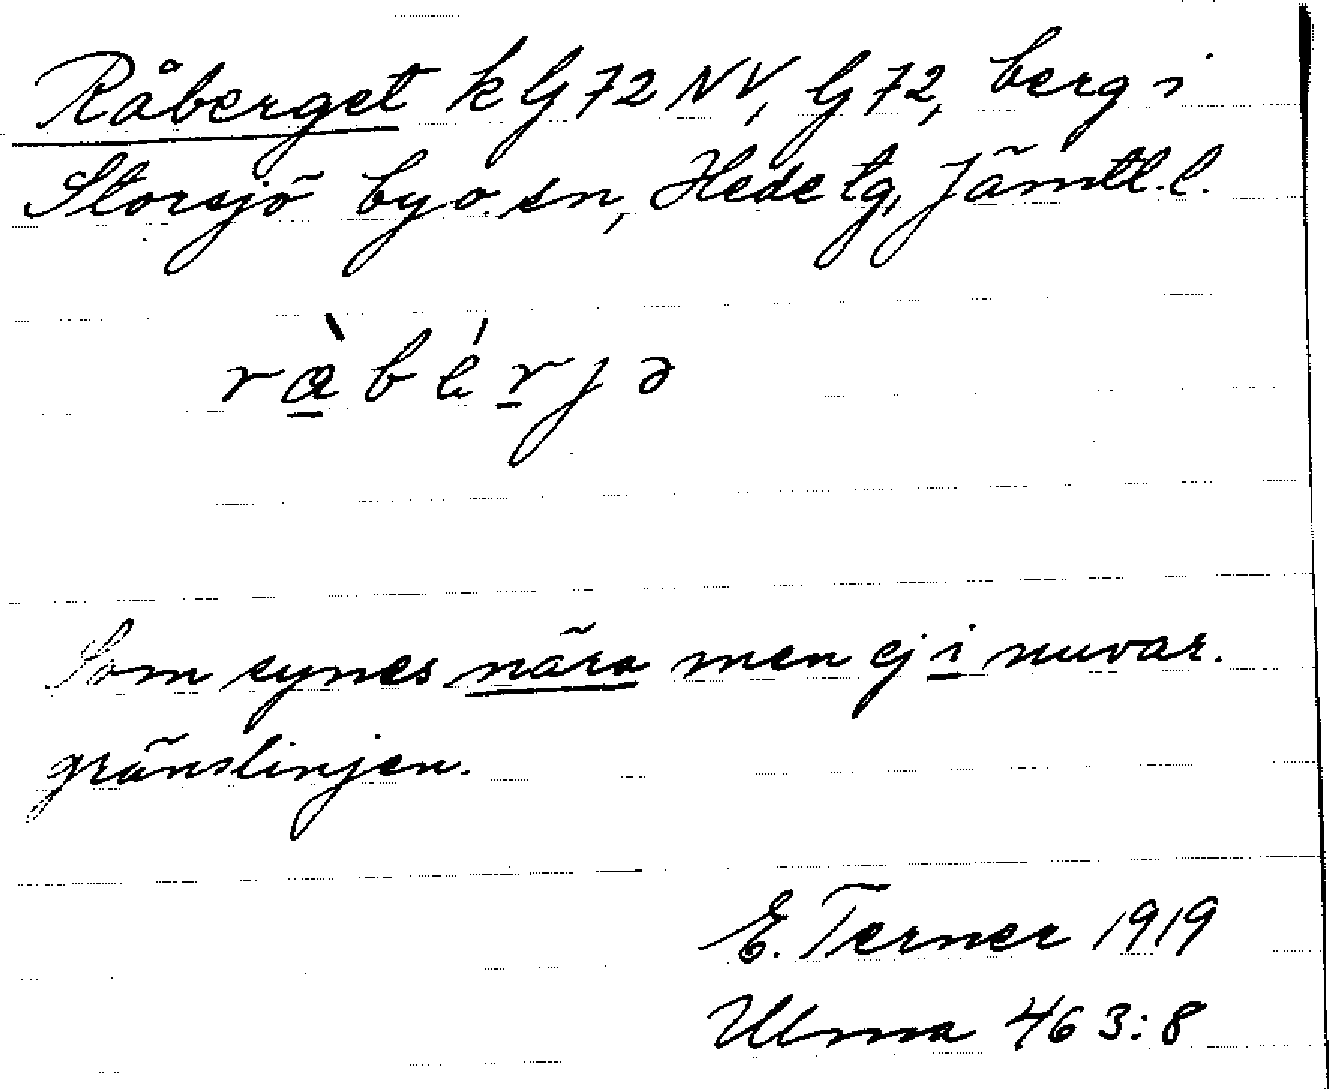 Råberget k G 72 NV, G 72, berg i
Storsjö by o. sn, Hede tg, Jämtl. l.
rà̲bérjə
Som synes nära men ej i nuvar.
gränslinjen.
E. Terner 1919
Ulma 463:8